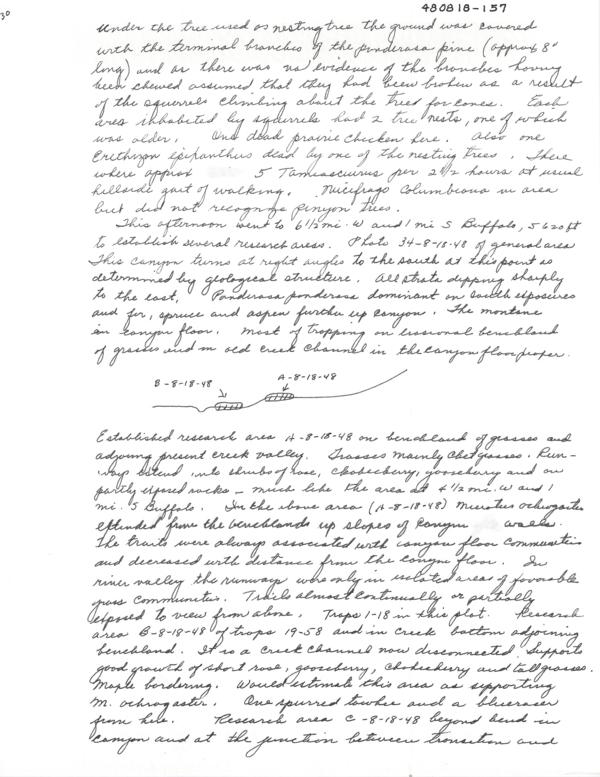 30
480818-157
Under the tree used as nesting tree the ground was covered
with the terminal branches of the ponderosa pine (approx 8"
long) and as there was no evidence of the branches having
been chewed assumed that they had been broken as a result
of the squirrels climbing about the trees for cones. Each
area inhabited by squirrels had 2 tree nests, one of which
was older. One dead prairie chicken here. Also one
Erethizon epixanthus dead by one of the nesting trees. There
where approx 5 Tamiasciurus per 2 1/2 hours at usual
hillside gait of walking. Nucifraga Columbiana in area
but did not recognize pinyon trees.
This afternoon went to 6 1/2 mi. W and 1 mi S Buffalo, 5620 ft
to establish several research areas. Photo 34-8-18-48 of general area
This canyon turns at right angles to the south at this point as
determined by geological structure. All strata dipping sharply
to the east. Ponderosa ponderosa dominant on south exposures
and fir, spruce and aspen further up canyon. The montane
in canyon floor. Most of trapping on benchland
of grasses and in old creek channel in the canyon floor proper.
B-8-18-48
A-8-18-48
Established research area A-8-18-48 on benchland of grasses and
adjoining present creek valley. Grasses mainly Chet grasses. Run-
ways extend into shrubs of rose, chokecherry, gooseberry and on
partly exposed rocks - much like the area at 4 1/2 mi. W and 1
mi. S Buffalo. In the above area (A-8-18-48) Microtus ochrogaster
extended from the benchlands up slopes of canyon walls.
The trails were always associated with canyon floor communities
and decreased with distance from the canyon floor. In
river valley the runways were only in isolated areas of favorable
grass communities. Trails almost continually or partially
exposed to view from above. Traps 1-18 in this plot. Research
area B-8-18-48 of traps 19-58 and in creek bottom adjoining
benchland. It is a creek channel now disconnected. Supports
good growth of short rose, gooseberry, chokecherry and tall grasses.
Maple bordering. Would estimate this area as supporting
M. ochrogaster. One spurred towhee and a blue racer
from here. Research area C-8-18-48 beyond bend in
canyon and at the junction between transition and